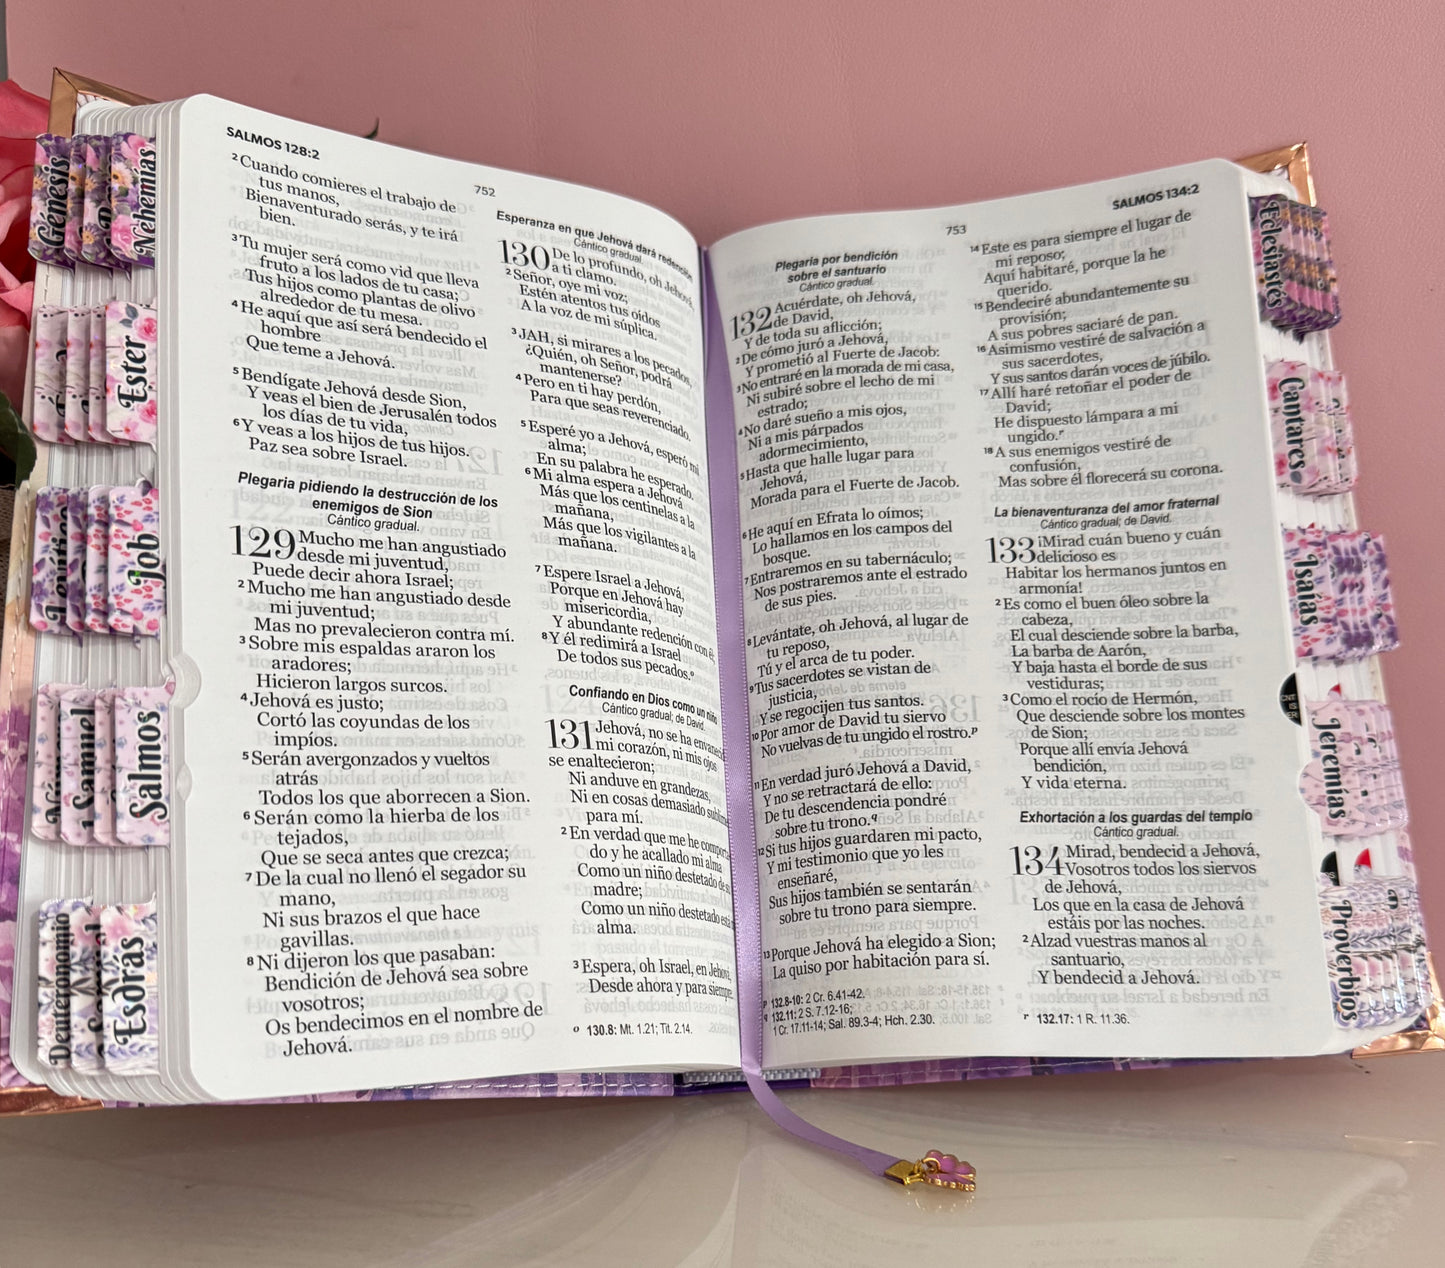 SALMOS 128:2
752
² Cuando comieres el trabajo de
tus manos,
Bienaventurado serás, y te irá
bien.
³ Tu mujer será como vid que lleva
fruto a los lados de tu casa;
Tus hijos como plantas de olivo
alrededor de tu mesa.
⁴ He aquí que así será bendecido el
hombre
Que teme a Jehová.
⁵ Bendígate Jehová desde Sion,
Y veas el bien de Jerusalén todos
los días de tu vida,
⁶ Y veas a los hijos de tus hijos.
Paz sea sobre Israel.
Plegaria pidiendo la destrucción de los
enemigos de Sion
Cántico gradual.
129 Mucho me han angustiado
desde mi juventud,
Puede decir ahora Israel;
² Mucho me han angustiado desde
mi juventud;
Mas no prevalecieron contra mí.
³ Sobre mis espaldas araron los
aradores;
Hicieron largos surcos.
⁴ Jehová es justo;
Cortó las coyundas de los
impíos.
⁵ Serán avergonzados y vueltos
atrás
Todos los que aborrecen a Sion.
⁶ Serán como la hierba de los
tejados,
Que se seca antes que crezca;
⁷ De la cual no llenó el segador su
mano,
Ni sus brazos el que hace
gavillas.
⁸ Ni dijeron los que pasaban:
Bendición de Jehová sea sobre
vosotros;
Os bendecimos en el nombre de
Jehová.
Esperanza en que Jehová dará redención
Cántico gradual.
130 De lo profundo, oh Jehová,
a ti clamo.
² Señor, oye mi voz;
Estén atentos tus oídos
A la voz de mi súplica.
³ JAH, si mirares a los pecados,
¿Quién, oh Señor, podrá
mantenerse?
⁴ Pero en ti hay perdón,
Para que seas reverenciado.
⁵ Esperé yo a Jehová, esperó mi
alma;
En su palabra he esperado.
⁶ Mi alma espera a Jehová
Más que los centinelas a la
mañana,
Más que los vigilantes a la
mañana.
⁷ Espere Israel a Jehová,
Porque en Jehová hay
misericordia,
Y abundante redención con él;
⁸ Y él redimirá a Israel
De todos sus pecados.º
Confiando en Dios como un niño
Cántico gradual; de David.
131 Jehová, no se ha envanecido
mi corazón, ni mis ojos
se enaltecieron;
Ni anduve en grandezas,
Ni en cosas demasiado sublimes
para mí.
² En verdad que me he comporta-
do y he acallado mi alma
Como un niño destetado de su
madre;
Como un niño destetado está mi
alma.
³ Espera, oh Israel, en Jehová,
Desde ahora y para siempre.
o 130.8: Mt. 1.21; Tit. 2.14.
753
SALMOS 134:2
Plegaria por bendición
sobre el santuario
Cántico gradual.
132 Acuérdate, oh Jehová,
de David,
Y de toda su aflicción;
² De cómo juró a Jehová,
Y prometió al Fuerte de Jacob:
³ No entraré en la morada de mi casa,
Ni subiré sobre el lecho de mi
estrado;
⁴ No daré sueño a mis ojos,
Ni a mis párpados
adormecimiento,
⁵ Hasta que halle lugar para
Jehová,
Morada para el Fuerte de Jacob.
⁶ He aquí en Efrata lo oímos;
Lo hallamos en los campos del
bosque.
⁷ Entraremos en su tabernáculo;
Nos postraremos ante el estrado
de sus pies.
⁸ Levántate, oh Jehová, al lugar de
tu reposo,
Tú y el arca de tu poder.
⁹ Tus sacerdotes se vistan de
justicia,
Y se regocijen tus santos.
¹⁰ Por amor de David tu siervo
No vuelvas de tu ungido el rostro.ᵖ
¹¹ En verdad juró Jehová a David,
Y no se retractará de ello:
De tu descendencia pondré
sobre tu trono.q
¹² Si tus hijos guardaren mi pacto,
Y mi testimonio que yo les
enseñaré,
Sus hijos también se sentarán
sobre tu trono para siempre.
¹³ Porque Jehová ha elegido a Sion;
La quiso por habitación para sí.
p 132.8-10: 2 Cr. 6.41-42.
q 132.11: 2 S. 7.12-16;
1 Cr. 17.11-14; Sal. 89.3-4; Hch. 2.30.
¹⁴ Este es para siempre el lugar de
mi reposo;
Aquí habitaré, porque la he
querido.
¹⁵ Bendeciré abundantemente su
provisión;
A sus pobres saciaré de pan.
¹⁶ Asimismo vestiré de salvación a
sus sacerdotes,
Y sus santos darán voces de júbilo.
¹⁷ Allí haré retoñar el poder de
David;
He dispuesto lámpara a mi
ungido.ʳ
¹⁸ A sus enemigos vestiré de
confusión,
Mas sobre él florecerá su corona.
La bienaventuranza del amor fraternal
Cántico gradual; de David.
133 ¡Mirad cuán bueno y cuán
delicioso es
Habitar los hermanos juntos en
armonía!
² Es como el buen óleo sobre la
cabeza,
El cual desciende sobre la barba,
La barba de Aarón,
Y baja hasta el borde de sus
vestiduras;
³ Como el rocío de Hermón,
Que desciende sobre los montes
de Sion;
Porque allí envía Jehová
bendición,
Y vida eterna.
Exhortación a los guardas del templo
Cántico gradual.
134 Mirad, bendecid a Jehová,
Vosotros todos los siervos
de Jehová,
Los que en la casa de Jehová
estáis por las noches.
² Alzad vuestras manos al
santuario,
Y bendecid a Jehová.
r 132.17: 1 R. 11.36.
Génesis
Nehemías
Ester
Levítico
Job
1 Samuel
Salmos
Deuteronomio
Esdrás
Eclesiastes
Cantares
Isaías
Jeremías
Proverbios